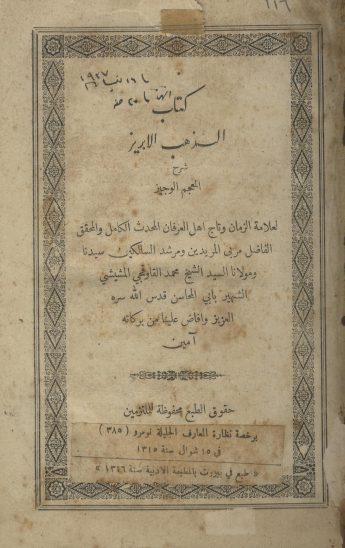 ١١٦
كتاب
الذهب الابريز
شرح
المعجم الوجيز
لعلامة الزمان وتاج اهل العرفان المحدث الكامل والمحقق
الفاضل مربى المريدين ومرشد السالكين سيدنا
ومولانا السيد الشيخ محمد القاوقجي المشيشي
الشهير بابي المحاسن قدس الله سره
العزيز وافاض علينا من بركاته
آمين
حقوق الطبع محفوظة للملتزمين
برخصة نظارة المعارف الجليلة نومرو (٣٨٥)
فى ١٥ شوال سنة ١٣١٥
« طبع في بيروت بالمطبعة الادبية سنة ١٣١٦ »